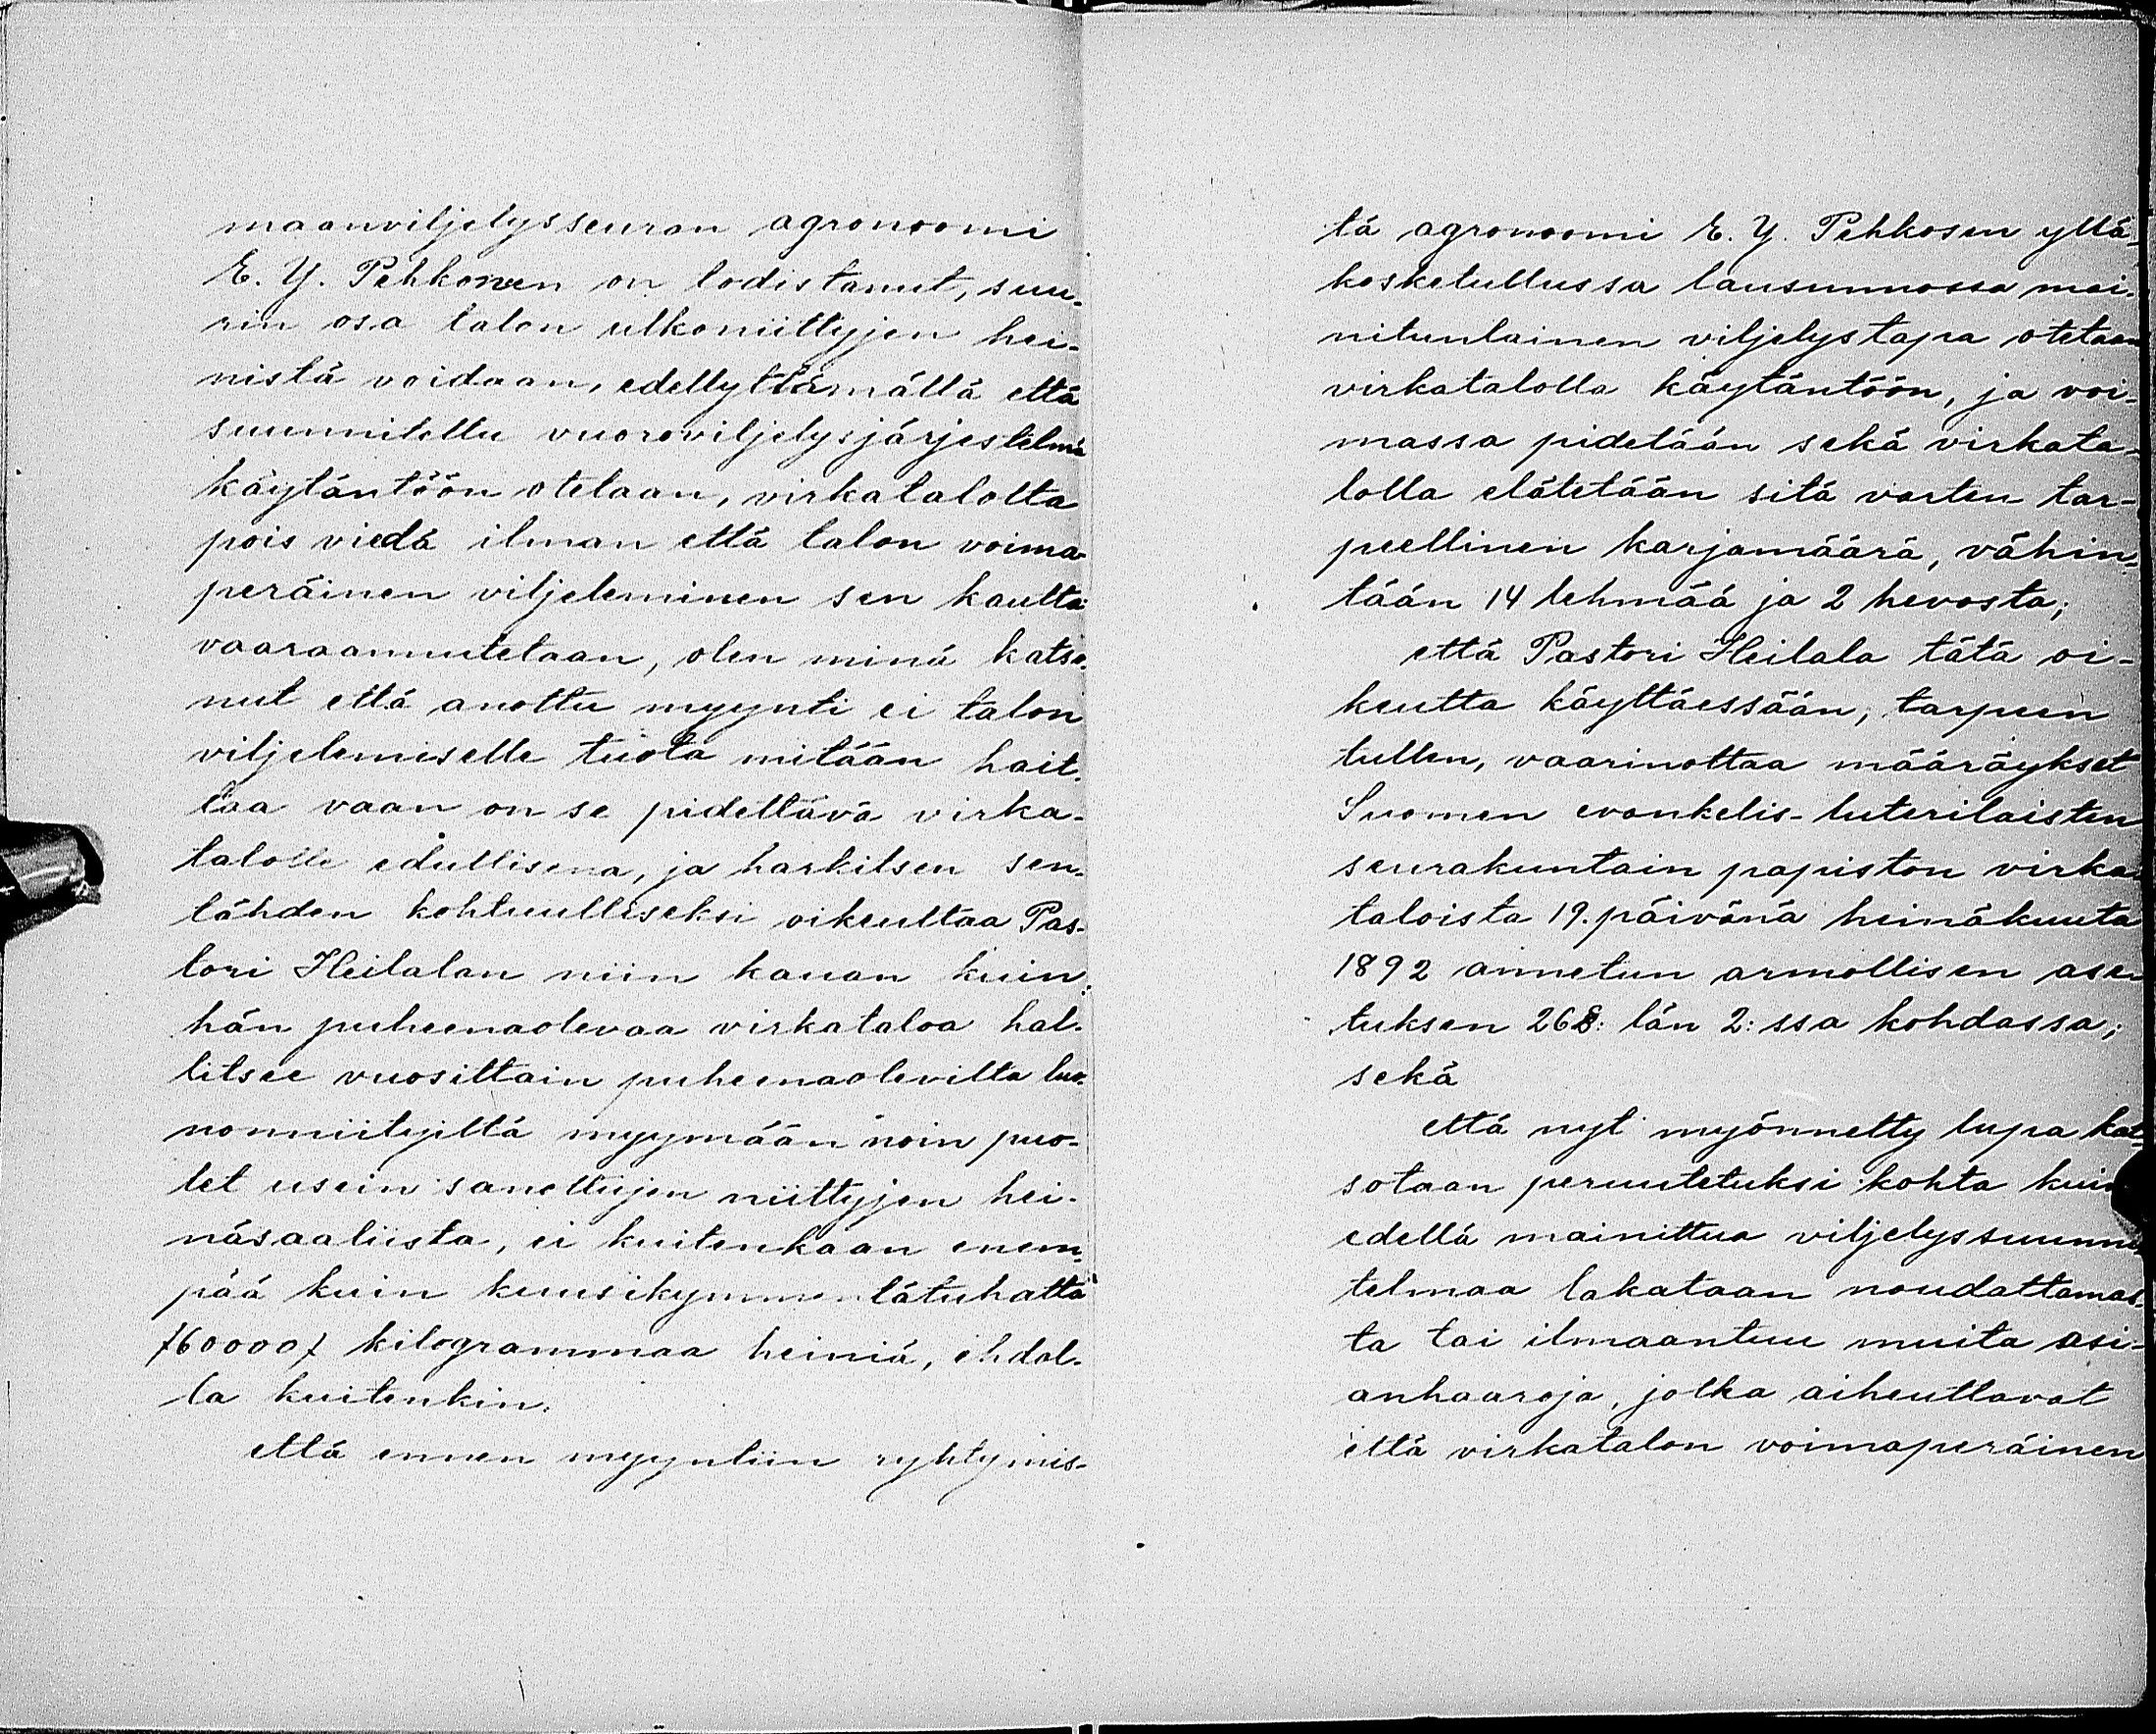 maanviljelysseuran agronoomi
E. Y. Pehkonen on todistanut, suu-
rin osa talon ulkoniittyjen hei-
nistä voidaan, edellyttämällä että
suunniteltu vuoroviljelysjärjestelmä
käytäntöön otetaan, virkatalolta
pois viedä ilman että talon voima-
peräinen viljeleminen sen kautta
vaaraannutetaan, olen minä katso-
nut että anottu myynti ei talon
viljelemiselle tuota mitään hait-
taa vaan on se pidettävä virka-
talolle edullisena, ja harkitsen sen-
tähden kohtuulliseksi oikeuttaa Pas-
tori Heilalan niin kauan kuin
hän puheenaolevaa virkataloa hal-
litsee vuosittain puheenaolevilta luo-
nonniityiltä myymään noin puo-
let usein sanottujen niittyjen hei-
näsaaliista, ei kuitenkaan enem-
pää kuin kuusikymmentätuhatta
/60000/ kilogrammaa heiniä, ehdol-
la kuitenkin:
että ennen myyntiin ryhtymis-
tä agronoomi E. Y. Pehkosen yllä-
kosketullussa lausunnossa mai-
nitunlainen viljelystapa otetaan
virkatalolla käytäntöön, ja voi-
massa pidetään sekä virkata-
lolla elätetään sitä varten tar-
peellinen karjamäärä, vähin-
tään 14 lehmää ja 2 hevosta;
että Pastori Heilala tätä oi-
keutta käyttäessään, tarpeen
tullen, vaarinottaa määräykset
Suomen evankelis-luterilaisten
seurakuntain papiston virka-
taloista 19. päivänä heinäkuuta
1892 annetun armollisen ase-
tuksen 26 §: län 2: ssa kohdassa;
sekä
että nyt myönnetty lupa kat-
sotaan peruutetuksi kohta kuin
edellä mainittua viljelyssuunni-
telmaa lakataan noudattamas-
ta tai ilmaantuu muita asi-
anhaaroja, jotka aiheuttavat
että virkatalon voimaperäinen